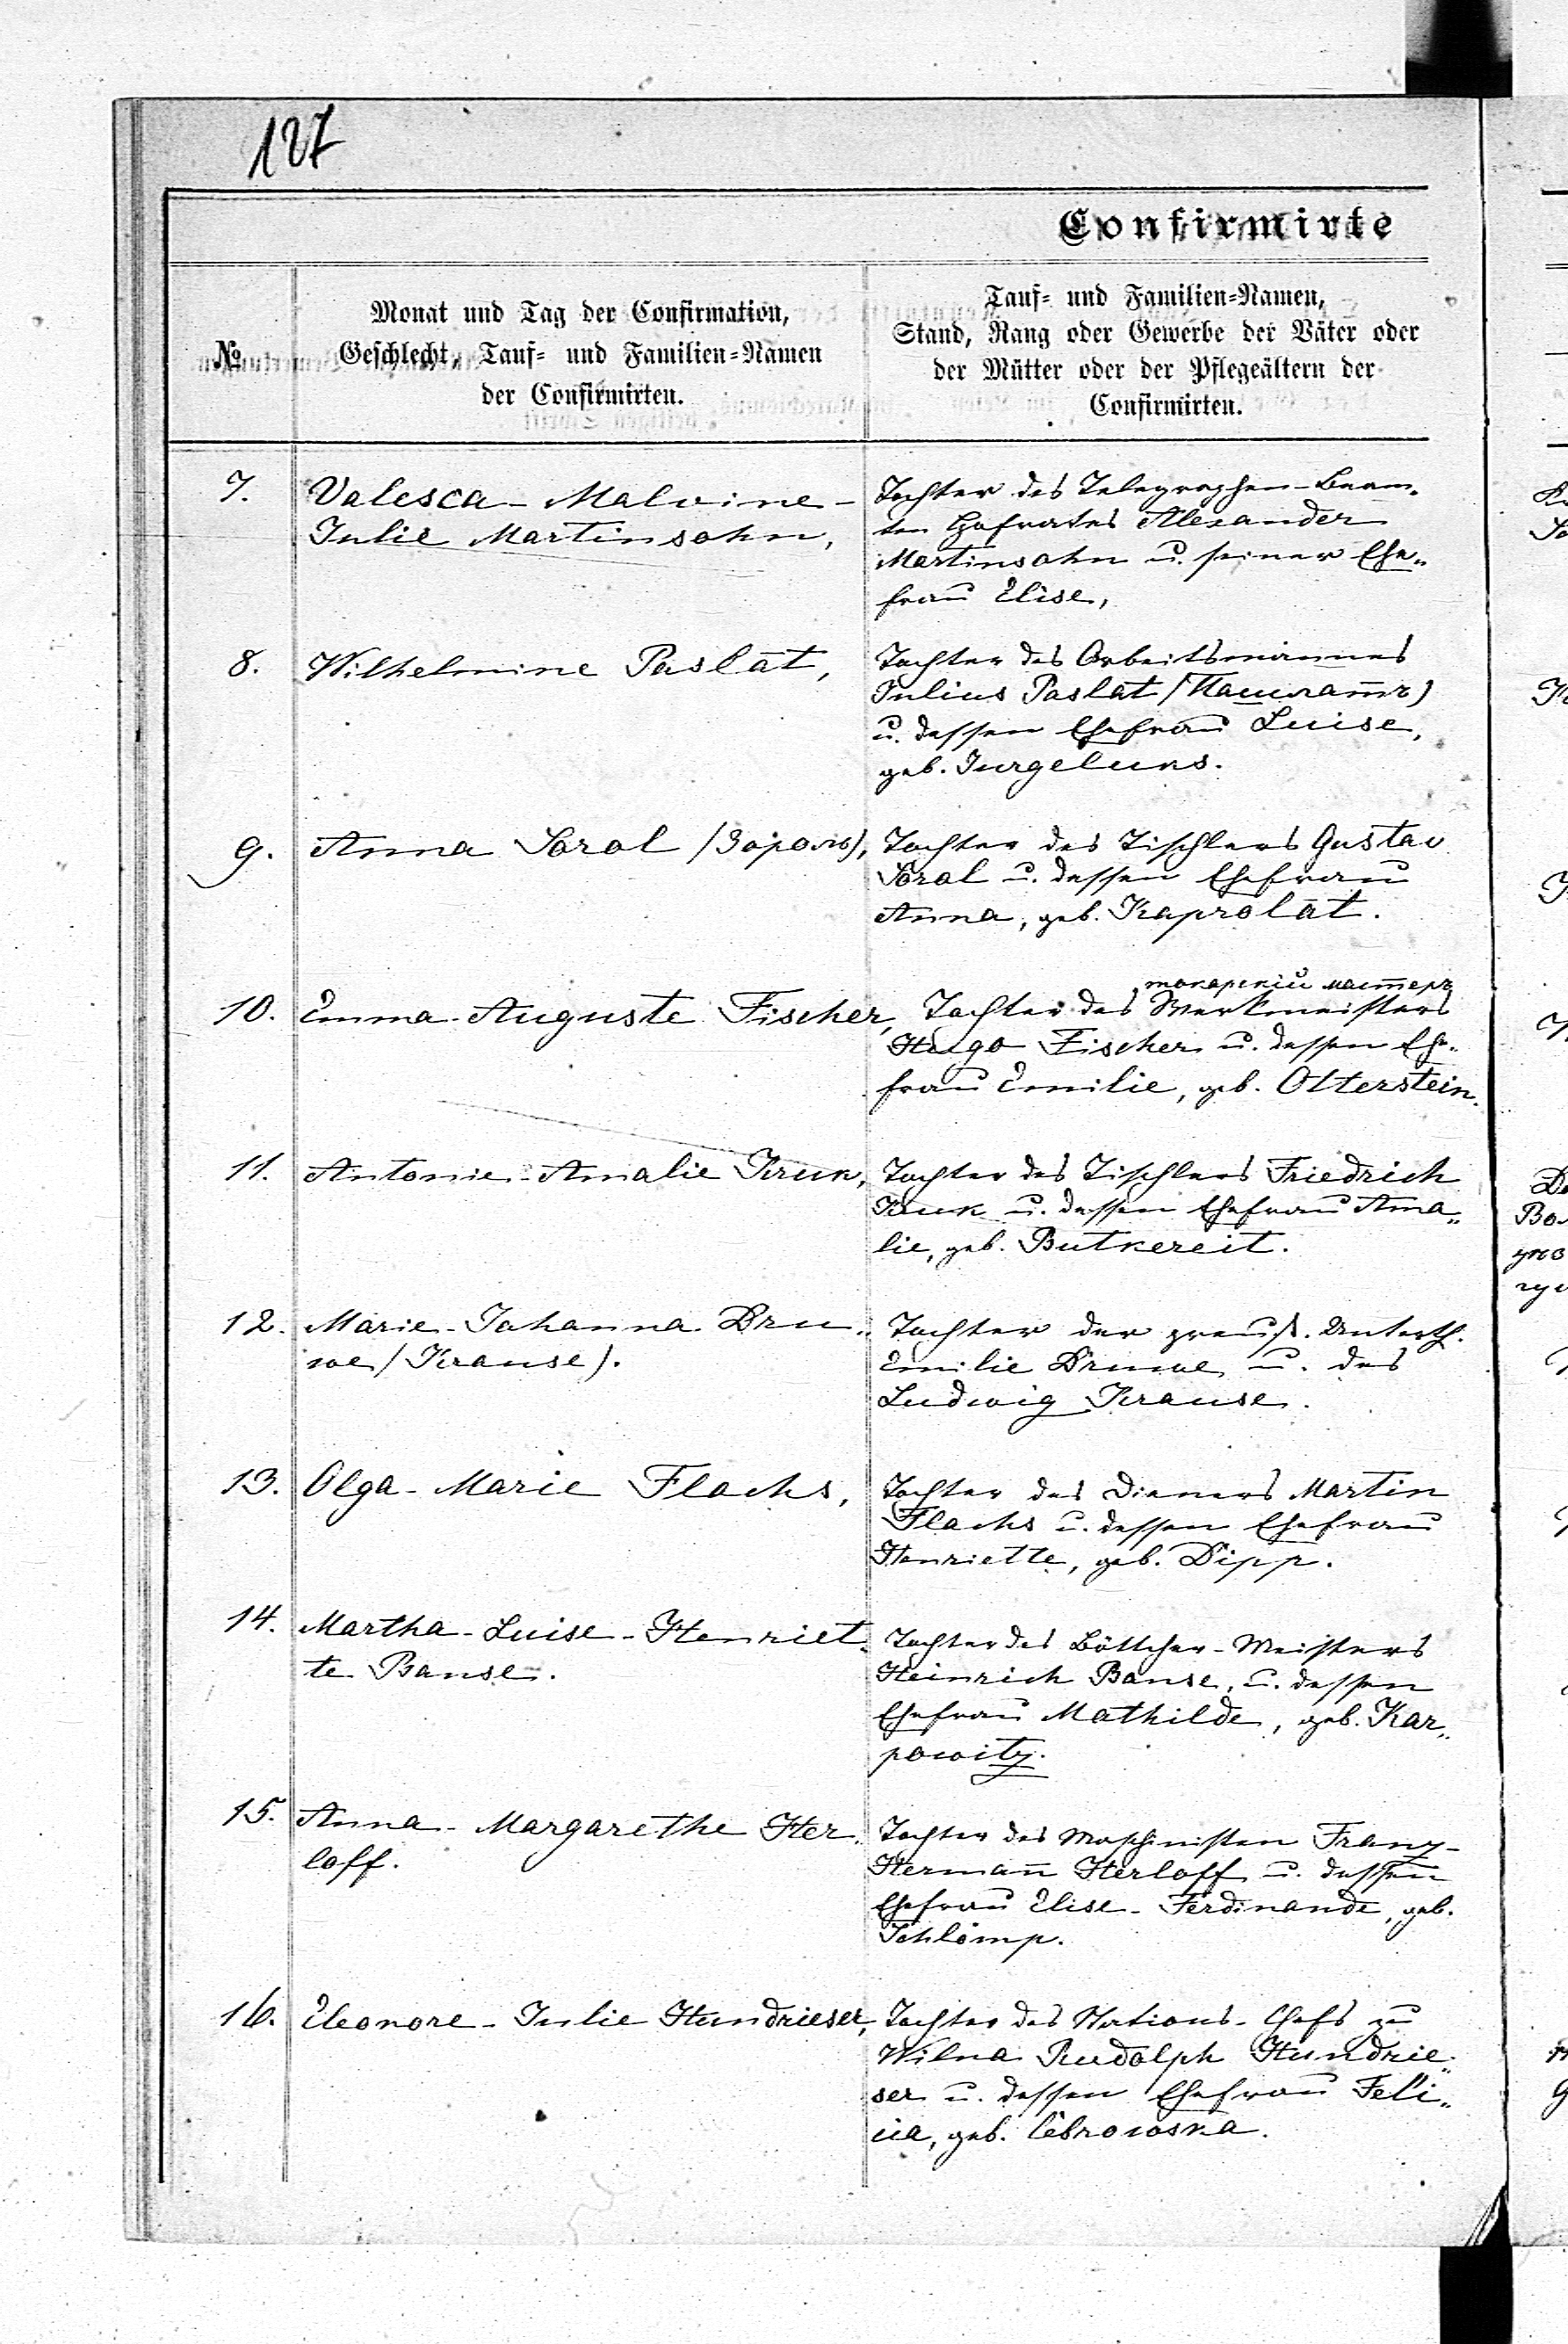 127
Confirmirte
№
Monat und Tag der Confirmation,
Geschlecht, Tauf- und Familien-Namen
der Confirmirten.
Tauf- und Familien-Namen,
Stand, Rang oder Gewerbe der Väter oder
der Mütter oder der Pflegeältern der
Confirmirten.
7.
Valesca-Malvine-
Julie Martinsohn,
Tochter des Telegraphen-Beam-
ten Hofrates Alexander
Martinsohn u. seiner Ehe-
frau Elise,
8.
Wilhelmine Paslat,
Tochter des Arbeitsmannes
Julius Paslat (Пашлатъ)
u. dessen Ehefrau Luise,
geb. Jurgeluns.
9.
Anna Sorol (Зороль),
Tochter des Tischlers Gustav
Sorol u. dessen Ehefrau
Anna, geb. Kaprolat.
10.
Emma-Auguste Fischer,
токарскій мастеръ
Tochter des Werkmeisters
Hugo Fischer u. dessen Ehe-
frau Emilie, geb. Otterstein.
11.
Antonie-Amalie Kruk,
Tochter des Tischlers Friedrich
Kruk u. dessen Ehefrau Ama-
lie, geb. Butkereit.
12.
Marie-Johanna Dru-
we (Krause).
Tochter der preuß. Unterth.
Emilie Druwe u. des
Ludwig Krause.
13.
Olga-Marie Flachs,
Tochter des Dieners Martin
Flachs u. dessen Ehefrau
Henriette, geb. Dipp.
14.
Martha-Luise-Henriet-
te Banse.
Tochter des Böttcher-Meisters
Heinrich Banse, u. dessen
Ehefrau Mathilde, geb. Kar-
powitz.
15.
Anna-Margarethe Her-
loff.
Tochter des Maschinisten Franz-
Hermann Herloff u. dessen
Ehefrau Elise-Ferdinande, geb.
Schlömp.
16.
Eleonore-Julie Hundrieser,
Tochter des Stations-Chefs zu
Wilna Rudolph Hundrie-
ser u. dessen Ehefrau Feli-
cia, geb. Cebrowska.